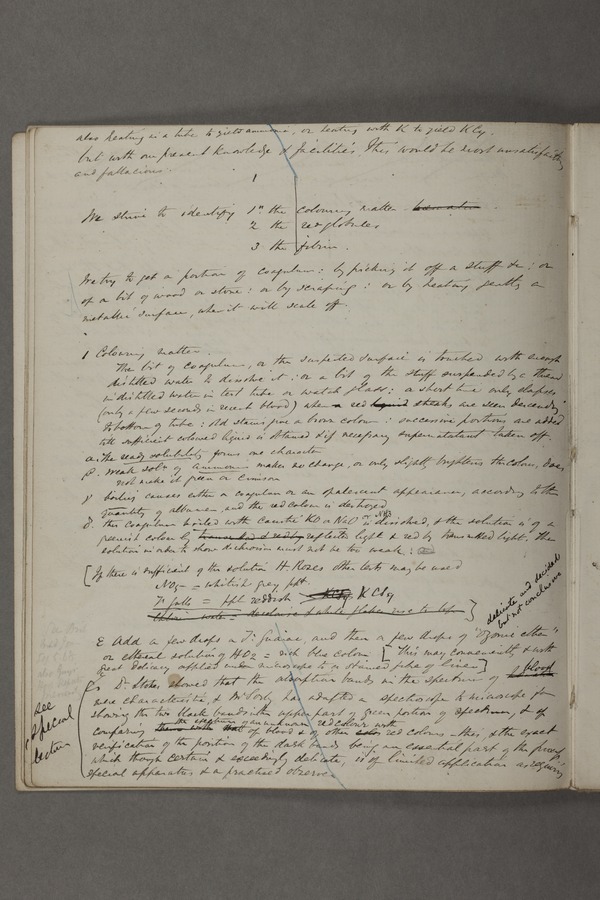 also heating in a tube to yield ammonia, or heating with K to yield KCy.
but with our present knowledge & facilities this would be most unsatisfactory
and fallacious.
1
We strive to identify 1st the colouring matter
2 the red globules
3 the fibrin.
We try to get a portion of coagulum: by picking it off a stuff &c: or
of a bit of wood or stone: or by scraping: or by heating gently on
metallic surface, when it will scale off.
1 Colouring matter.
The bit of coagulum, or the suspected surface is touched with enough
distilled water to dissolve it: or a bit of the stuff suspended by a thread
in distilled water in test tube or watch glass: a short time only elapses
(only a few seconds in recent blood) when a red streaks are seen descending
to bottom of tube: old stains give a brown colour: successive portions are added
till sufficient coloured liquid is obtained & if necessary supernatant taken off
α. The ready solubility forms one character
β. weak soln of ammonia makes no change, or only slightly brightens the colour, does
not make it green or crimson
γ boiling causes either a coagulum or an opalescent appearance, according to the
quantity of albumen, and the red colour is destroyed
δ. this coagulum boiled with caustic KO or NaO or NH3 is dissolved, & the solution is of a
greenish colour by reflected light & red by transmitted light. The
solution in order to show dichroism must not be too weak:
[If there is sufficient of the solution H Roses other tests may be used
NO5 = whitish grey ppt.
Tr galls = ppt reddish KCy
delicate and decided
but not conclusive
ε Add a few drops a Tr Guaiac, and then a few drops of "Ozonic ether"
or ethereal solution of HO2 = rich blue colour [This may conveniently & with
great delicacy applied under microscope to a stained fibre of linen]
Dr Stokes showed that the absorption bands in the spectrum of blood
were characteristic, & Mr Sorby has adapted a spectroscope to microscope for
showing the two black bands in the upper part of green portion of spectrum, & of
comparing the spectrum of an unknown red colour with
of blood & of other red colours – this, & the exact
verification of the position of the dark bands being an essential part of the process
which though certain & exceedingly delicate, is of limited application as requiring
special apparatus & a practised observer
see
special
lecture